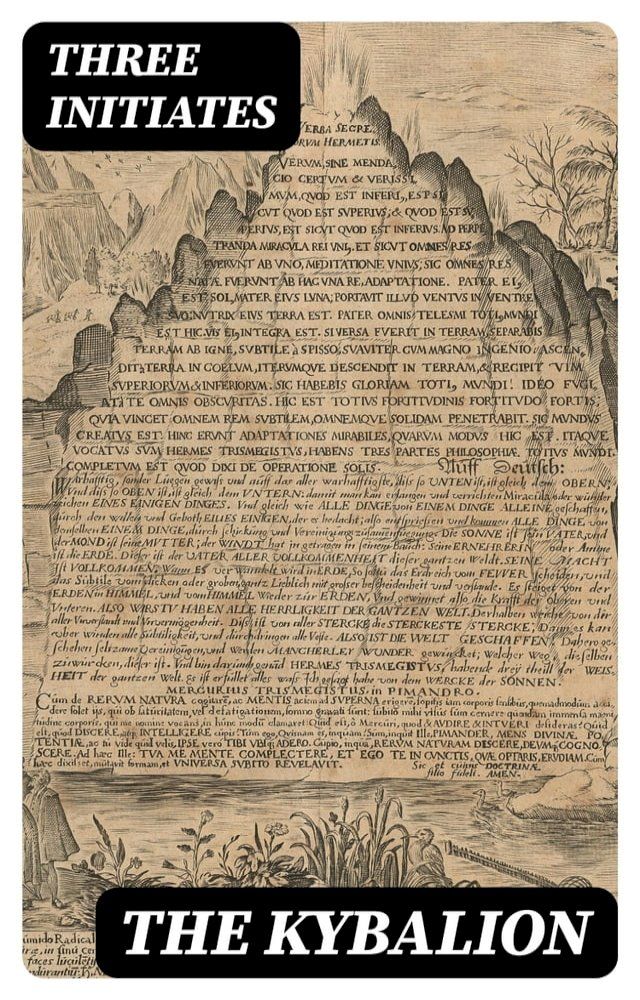 THREE
INITIATES
VERBA SECRE
ORUM HERMETIS.
VERUM, SINE MENDA,
CIO CERTUM & VERISSI,
MUM, QUOD EST INFERI, EST SI
CUT QUOD EST SUPERIUS; & QUOD EST SU,
PERIUS, EST SICUT QUOD EST INFERIUS AD PERPE
TRANDA MIRACULA REI UNI,. ET SICUT OMNES RES
FUERUNT AB UNO, MEDITATIONE UNIUS; SIC OMNES RES
NATÆ FUERUNT AB HAC UNA RE, ADAPTATIONE. PATER EI,
EST SOL, MATER EIUS LUNA; PORTAVIT ILLUD VENTUS IN VENTRE
SUO: NUTRIX EIUS TERRA EST. PATER OMNIS TELESMI TOTI, MUNDI
EST HIC. VIS EI, INTEGRA EST. SI VERSA FUERIT IN TERRAM, SEPARABIS
TERRAM AB IGNE, SUBTILE à SPISSO, SUAVITER CUM MAGNO INGENIO. ASCEN,
DIT à TERRA IN COELUM, ITERUMQUE DESCENDIT IN TERRAM, & RECIPIT VIM
SUPERIORUM & INFERIORUM. SIC HABEBIS GLORIAM TOTI, MUNDI! IDEO FUGI,
AT à TE OMNIS OBSCURITAS. HIC EST TOTIUS FORTITUDINIS FORTITUDO FORTIS;
QUIA VINCET OMNEM REM SUBTILEM, OMNEMQUE SOLIDAM PENETRABIT. SIC MUNDUS
CREATUS EST. HINC ERUNT ADAPTATIONES MIRABILES, QUARUM MODUS HIC EST. ITAQUE
VOCATUS SUM HERMES TRISMEGISTUS, HABENS TRES PARTES PHILOSOPHIÆ TOTIUS MUNDI.
COMPLETUM EST QUOD DIXI DE OPERATIONE SOLIS. Auff Deutsch:
Warhafftig, sonder Luegen gewiss und auff das aller warhafftigste, diss so UNTEN ist, ist gleich dem OBERN:
Und diss so OBEN ist, ist gleich dem UNTERN: damit man kan erlangen und verrichten Miracula oder wunder
zeichen EINES EINIGEN DINGES. Und gleich wie ALLE DINGE von EINEM DINGE ALLEINE geschaffen,
durch den willen und Geboth EINES EINIGEN, der es bedacht; also entspriessen und kommen ALLE DINGE von
demselben EINEM DINGE, durch schickung und Vereinigung zusammenfuegung. Die SONNE ist sein VATER, und
der MOND ist seine MUTTER; der WINDT hat in getragen in seinem Bauch: Seine ERNEHRERIN oder Amme
ist die ERDE. Dieser ist der VATER ALLER VOLLKOMMENHEIT dieser gantzen Weldt. SEINE MACHT
IST VOLLKOMMEN; Wann ES ver wandelt wird in ERDE, So soltu das Erdreich vom FEWER scheiden, und
das Subtile vom dicken oder groben, gantz Lieblich mit grosser bescheidenheit und verstande. Es steiget von der
ERDEN in HIMMEL, und vom HIMMEL Wieder zur ERDEN, Und gewinnet also die Krafft der obern und
Unteren. ALSO WIRSTU HABEN ALLE HERRLIGKEIT DER GANTZEN WELT. Derhalben weiche von dir
aller Unverstandt und Unvermögenheit. Diss ist von aller STERCKE die STERCKESTE STERCKE, Dann es kan
über winden alle Subtiligkeit, und durchdringen alle Veste. ALSO IST DIE WELT GESCHAFFEN. Dahero ge-
schehen seltzame Vereinigungen, und werden MANCHERLEY WUNDER gewircket; welcher Weg die selben
zuwürcken, dieser ist. Und bin darumb genand HERMES TRISMEGISTUS, habende drey theill der WEIS,
HEIT der gantzen Welt. Es ist erfüllet alles was Ich gesagt habe von dem WERCKE der SONNEN.
MERCURIUS TRISMEGISTUS, in PIMANDRO.
Cùm de RERUM NATURA cogitare, ac MENTIS aciem ad SUPERNA erigere, sopitis iam corporis sensibus, quemadmodum acci,
dere solet ijs, qui ob saturitatem, vel defatigationem, somno grauati sunt: subitò mihi visus sum cernere quendam immensa magni,
tudine corporis, qui me nomine vocans in hunc modū clamaret: Quid est, ò Mercuri, quod & AUDIRE & INTUERI desideras? Quid
est, quod DISCERE, atq; INTELLIGERE cupis? Tum ego, Quisnam es, inquam: Sum, inquit Ille, PIMANDER, MENS DIVINÆ PO,
TENTIÆ, ac tu vide quid velis, IPSE verò TIBI Ubiq; ADERO. Cupio, inqua, RERUM NATURAM DISCERE, DEUMq; COGNO,
SCERE. Ad hæc Ille: TUA ME MENTE COMPLECTERE, ET EGO TE IN CUNCTIS, QUÆ OPTARIS, ERUDIAM. Cùm
hæc dixisset, mutavit formam, et UNIVERSA SUBITO REVELAVIT.
Sic et cuique DOCTRINÆ
filio fideli. AMEN.
THE KYBALION
umido Radical
iræ, in sinu cen
faces lucul